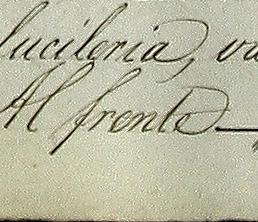 lucilonia, va
Al frente